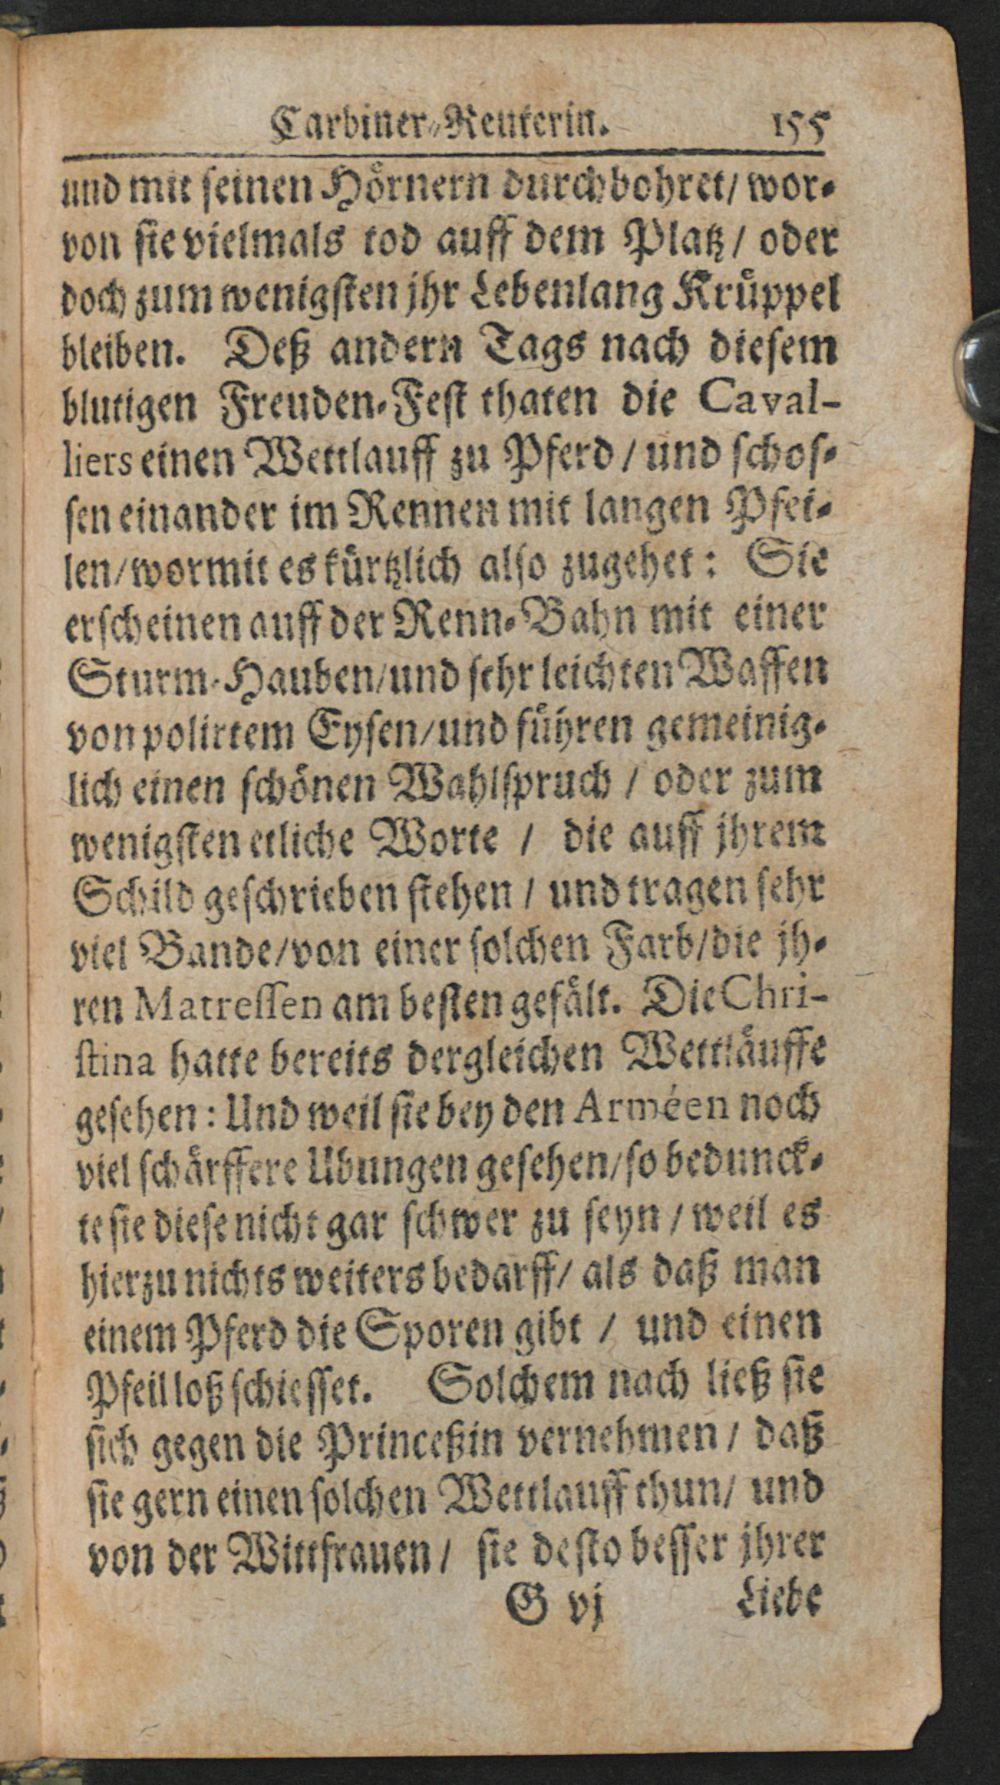 Carbiner-Reuterin. 155
und mit seinen Hörnern durchbohret/ wor-
von sie vielmals tod auff dem Platz / oder
doch zum wenigsten jhr Lebenlang Krüppel
bleiben. Deß andern Tags nach diesem
blutigen Freuden-Fest thaten die Caval-
liers einen Wettlauff zu Pferd / und schos-
sen einander im Rennen mit langen Pfei-
len/ wormit es kürtzlich also zugehet: Sie
erscheinen auff der Renn-Bahn mit einer
Sturm-Hauben/ und sehr leichten Waffen
von polirtem Eysen/ und führen gemeinig-
lich einen schönen Wahlspruch / oder zum
wenigsten etliche Worte / die auff jhrem
Schild geschrieben stehen / und tragen sehr
viel Bande/ von einer solchen Farb/ die jh-
ren Matressen am besten gefält. Die Chri-
stina hatte bereits dergleichen Wettläuffe
gesehen: Und weil sie bey den Arméen noch
viel schärffere Ubungen gesehen/ so bedunck-
te sie diese nicht gar schwer zu seyn / weil es
hierzu nichts weiters bedarff/ als daß man
einem Pferd die Sporen gibt / und einen
Pfeil loß schiesset. Solchem nach ließ sie
sich gegen die Princeßin vernehmen / daß
sie gern einen solchen Wettlauff thun/ und
von der Wittfrauen / sie desto besser jhrer
G vj Liebe